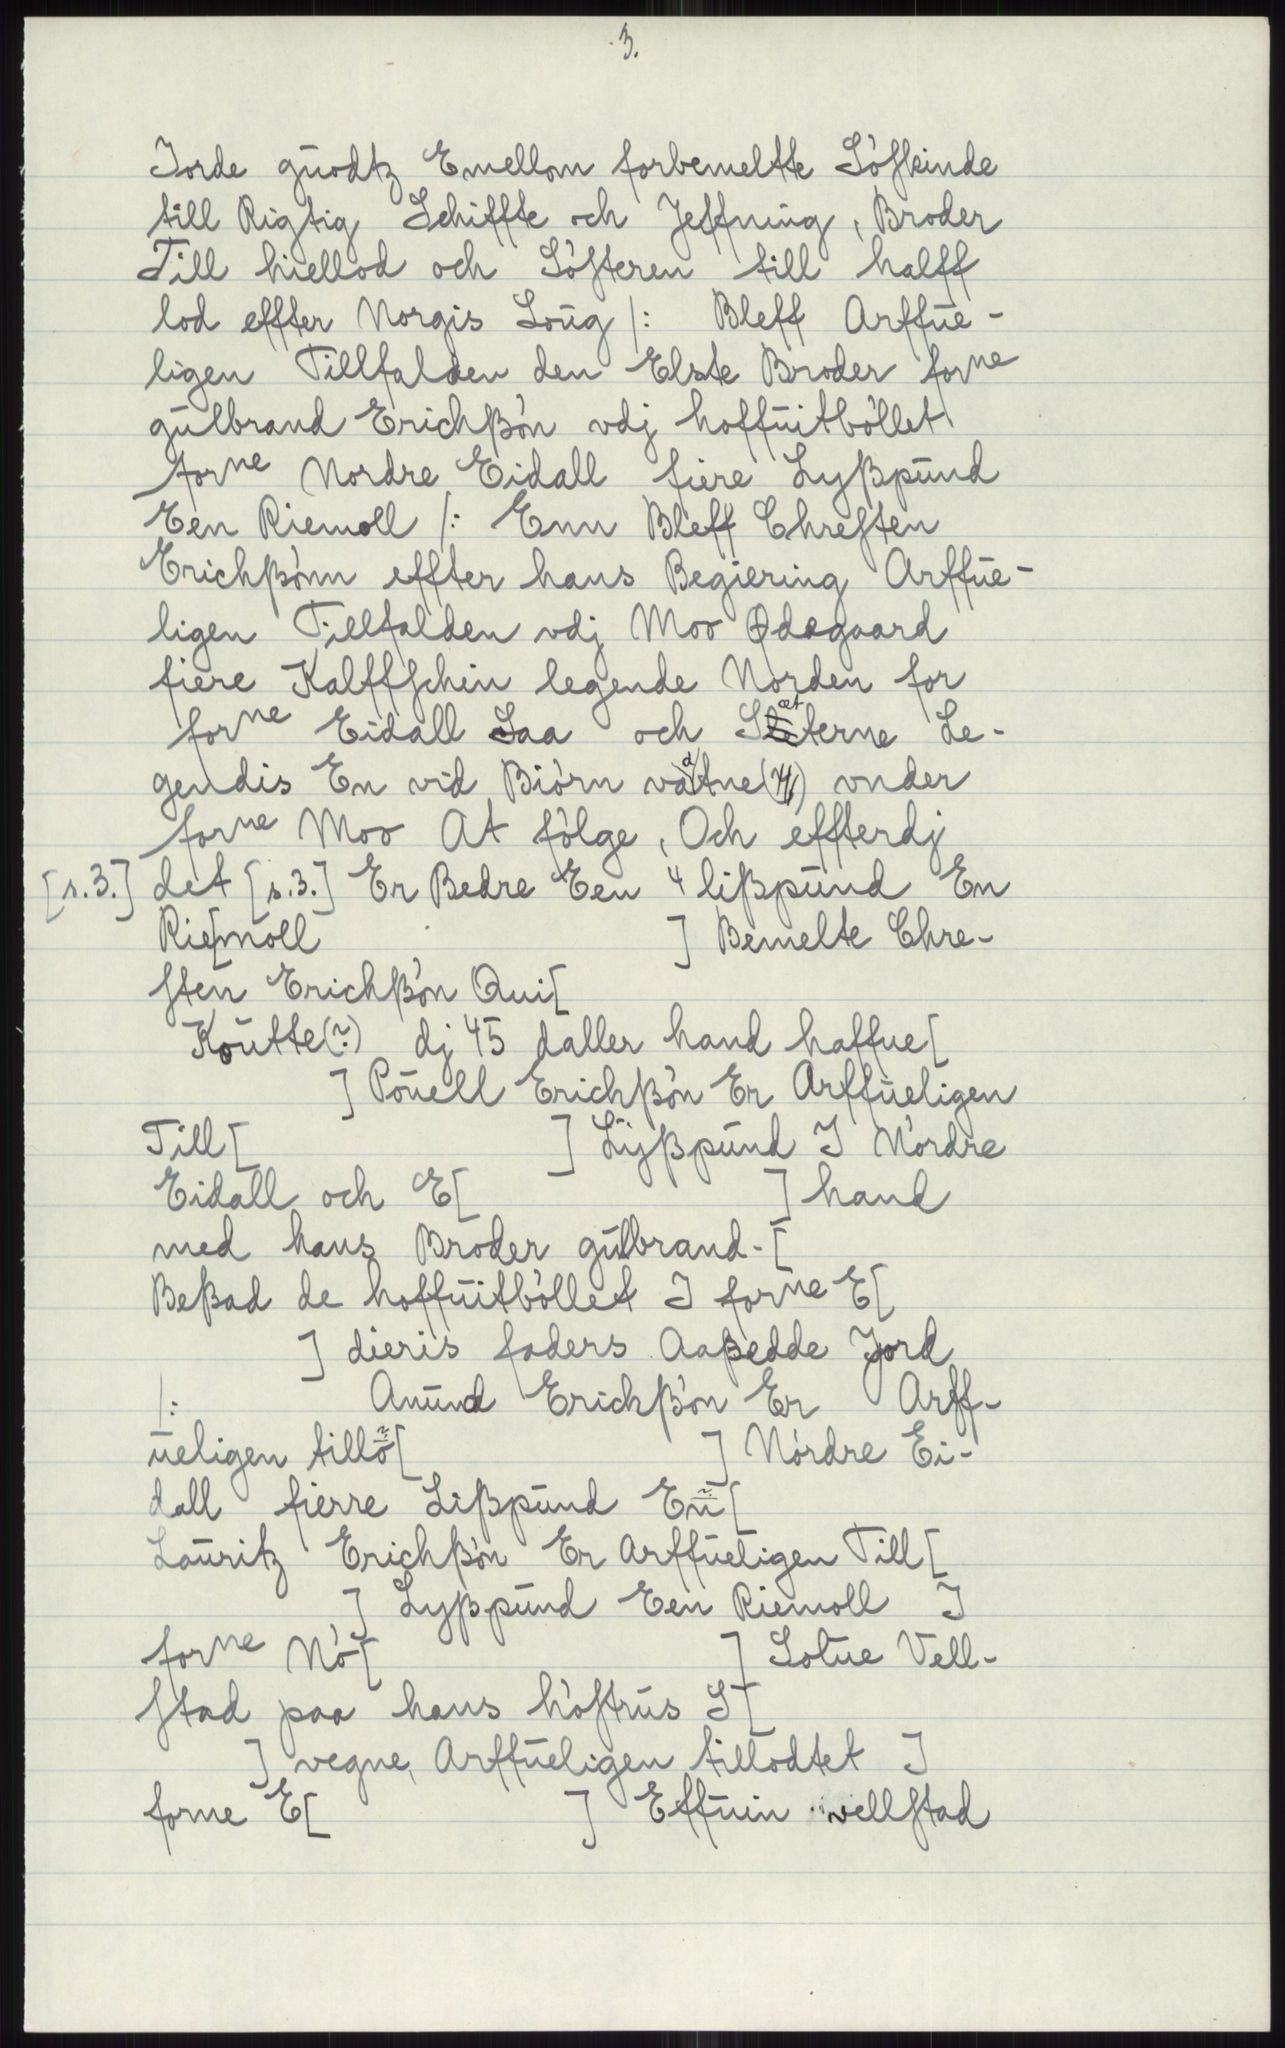 3.
Jorde gůodtz Emellom forbemeltte Sòsskeinde
till Rigtig Schiffte och Jeffning, Broder
Till hiellod och Sòsteren till halff
lod effter Norgis Loůg /: Bleff Arffůe-
ligen Tillfalden den Elste Broder forne
gůlbrand Erichßòn vdj hoffůitbòllet
forne Nordre Eidall fiere Lyßpůnd
Een Riemoll /: Enn Bleff Chresten
Erichßònn effter hans Begiering Arffůe-
ligen Tillfalden vdj Moo Ødegaard
fiere Kalffschin legende Norden for
forne Eidall Saa och Sæterne Le-
gendis En vid Biòrn vatne vnder
forne Moo At fòlge, Och effterdj
[s.3.] det [s.3.] Er Bedre Een 4 lißpůnd En
Rie[moll ] Bemelte Chre-
sten Erichßòn Qui[
Koůtte(?) dj 45 daller hand haffue[
] Poůell Erichßòn Er Arffůeligen
Till[ ] Lyßpůnd J Nòrdre
Eidall och E[ ] hand
med hans Broder gůlbrand-[
Beßad de hoffůitbòllet J forne E[
] dieris faders Aaßedde Jord
/: Amůnd Erichßòn Er Arff-
ůeligen tillo[ ] Nòrdre Ei-
dall fierre Lißpůnd En[
Laůritz Erichßòn Er Arffůeligen Till[
] Lyßpůnd Een Riemoll J
forne Nò[ ] Lotůe Vell-
stad paa hans hòstrůs S[
] vegne, Arffůeligen tillodtet J
forne E[ ] Effůin vellstad